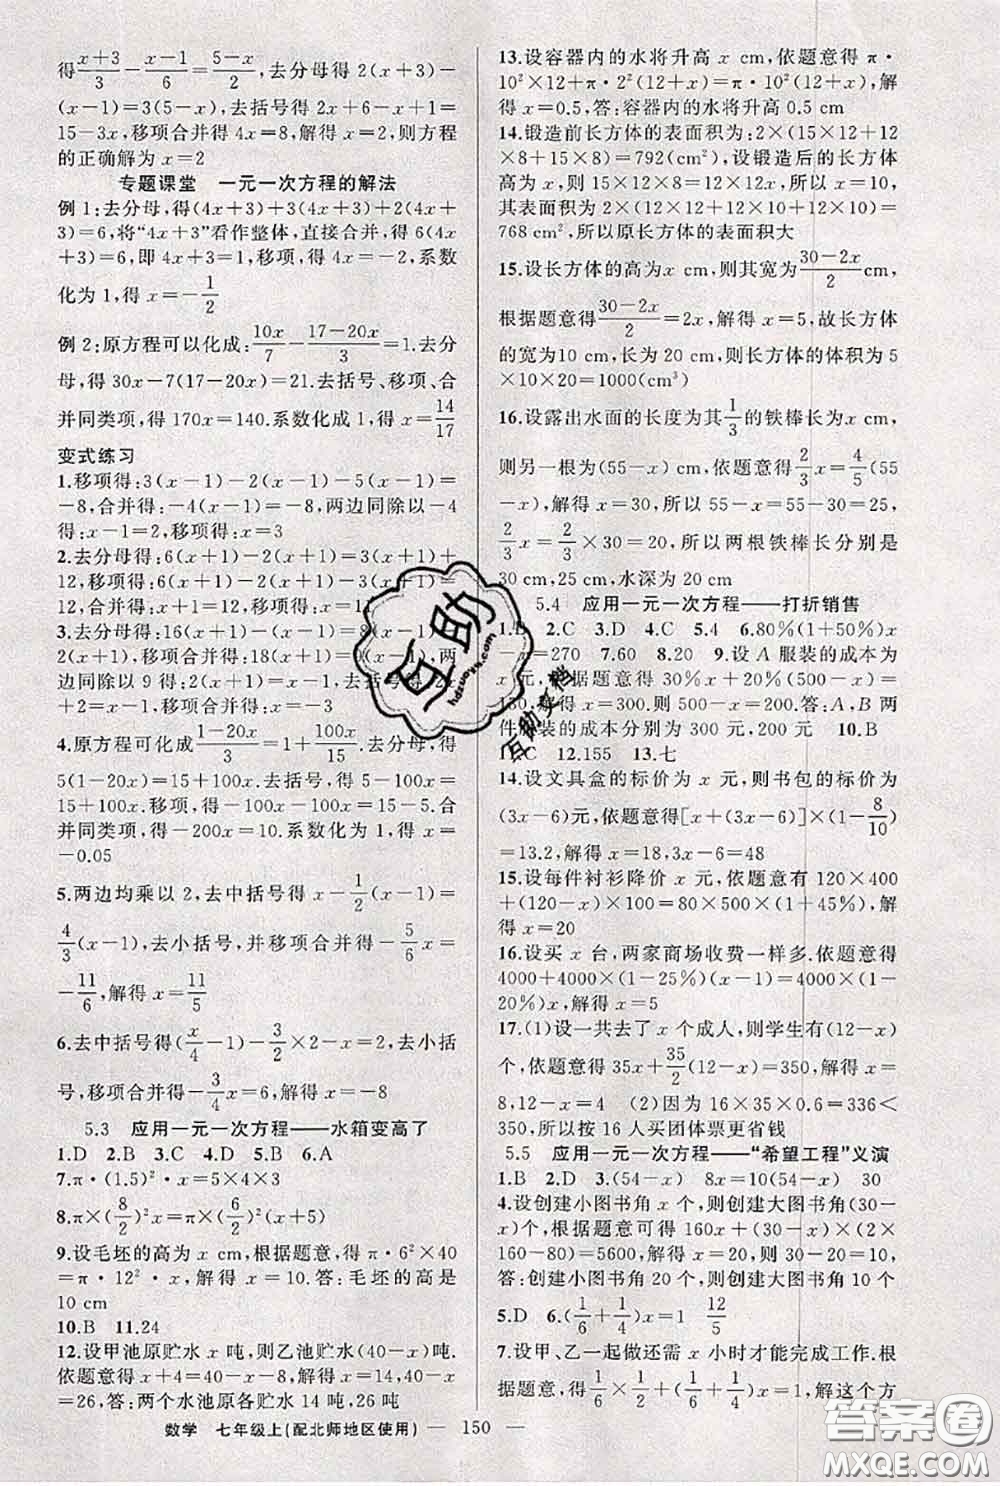 得(x+3)/3-(x-1)/6=(5-x)/2,去分母得 2(x+3)-
(x-1)=3(5-x),去括号得 2x+6-x+1=
15-3x,移项合并得 4x=8,解得 x=2,则方程
的正确解为 x=2
专题课堂 一元一次方程的解法
例 1:去分母,得(4x+3)+3(4x+3)+2(4x+
3)=6,将“4x+3”看作整体,直接合并,得 6(4x
+3)=6,即 4x+3=1,移项,得 4x=-2,系数
化为 1,得 x=-1/2
例 2:原方程可以化成:10x/7-(17-20x)/3=1.去分
母,得 30x-7(17-20x)=21.去括号、移项、合
并同类项,得 170x=140.系数化成 1,得 x=14/17
变式练习
1.移项得:3(x-1)-2(x-1)-5(x-1)=
-8,合并得:-4(x-1)=-8,两边同除以-4
得:x-1=2,移项得:x=3
2.去分母得:6(x+1)-2(x+1)=3(x+1)+
12,移项得:6(x+1)-2(x+1)-3(x+1)=
12,合并得:x+1=12,移项得:x=11
3.去分母得:16(x+1)-3(x-1)=6(x-1)-
2(x+1),移项合并得:18(x+1)=9(x-1),两
边同除以 9 得:2(x+1)=x-1,去括号得:2x
+2=x-1,移项合并得:x=-3
4.原方程可化成(1-20x)/3=1+100x/15.去分母,得
5(1-20x)=15+100x.去括号,得 5-100x=
15+100x.移项,得-100x-100x=15-5.合
并同类项,得-200x=10.系数化成 1,得 x=
-0.05
5.两边均乘以 2,去中括号得 x-1/2(x-1)=
4/3(x-1),去小括号,并移项合并得-5/6x=
-11/6,解得 x=11/5
6.去中括号得(x/4-1)-3/2×2-x=2,去小括
号,移项合并得-3/4x=6,解得 x=-8
5.3 应用一元一次方程——水箱变高了
1.D 2.B 3.C 4.D 5.B 6.A
7.π×(1.5)²·x=5×4×3
8.π×(8/2)²x=π×(6/2)²(x+5)
9.设毛坯的高为 x cm,根据题意,得 π·6²×40
=π·12²·x,解得 x=10.答:毛坯的高是
10 cm
10.B 11.24
12.设甲池原贮水 x 吨,则乙池贮水(40-x)吨.
依题意得 x+4=40-x-8,解得 x=14,40-x
=26,答:两个水池原各贮水 14 吨,26 吨
13.设容器内的水将升高 x cm,依题意得 π·
10²×12+π·2²(12+x)=π·10²(12+x),解
得 x=0.5,答:容器内的水将升高 0.5 cm
14.锻造前长方体的表面积为:2×(15×12+12
×8+15×8)=792(cm²),设锻造后的长方体
高为 x,则 15×12×8=12×12x,所以 x=10,
其表面积为 2×(12×12+12×10+12×10)=
768 cm²,所以原长方体的表面积大
15.设长方体的高为 x cm,则其宽为(30-2x)/2 cm,
根据题意得(30-2x)/2=2x,解得 x=5,故长方体
的宽为10 cm,长为 20 cm,则长方体的体积为 5
×10×20=1000(cm³)
16.设露出水面的长度为其1/3的铁棒长为 x cm,
则另一根为(55-x)cm,依题意得2/3x=4/5(55
-x),解得 x=30,所以 55-x=55-30=25,
2/3x=2/3×30=20,所以两根铁棒长分别是
30 cm,25 cm,水深为 20 cm
5.4 应用一元一次方程——打折销售
1.B 2.C 3.D 4.C 5.4 6.80%(1+50%)x
-x=270 7.60 8.20 9.设 A 服装的成本为
x 元,根据题意得 30%x+20%(500-x)=
130,解得 x=300.则 500-x=200.答:A,B 两
件服装的成本分别为 300 元,200 元 10.B
11.C 12.155 13.七
14.设文具盒的标价为 x 元,则书包的标价为
(3x-6)元,依题意得[x+(3x-6)]×(1-8/10)
=13.2,解得 x=18,3x-6=48
15.设每件衬衫降价 x 元,依题意有 120×400
+(120-x)×100=80×500×(1+45%),解
得 x=20
16.设买 x 台,两家商场收费一样多.依题意得
4000+4000×(1-25%)(x-1)=4000×(1-
20%)x,解得 x=5
17.(1)设一共去了 x 个成人,则学生有(12-x)
个,依题意得 35x+35/2(12-x)=350,解得 x=
8,12-x=4 (2)因为 16×35×0.6=336<
350,所以按 16 人买团体票更省钱
5.5 应用一元一次方程——“希望工程”义演
1.B 2.D 3.(54-x) 8x=10(54-x) 30
4.设创建小图书角 x 个,则创建大图书角(30-
x)个,根据题意可得 160x+(30-x)×(2×
160-80)=5600,解得 x=20,则 30-20=10,
答:创建小图书角 20 个,创建大图书角 10 个
5.D 6.(1/6+1/4)x=1 12/5
7.设甲、乙一起做还需 x 小时才能完成工作.根
据题意,得1/6×1/2+(1/6+1/4)x=1,解这个方
数学 七年级上(配北师地区使用) — 150 —
互助
hdzuoye.com
互助文档
答案圈
MXQE.COM